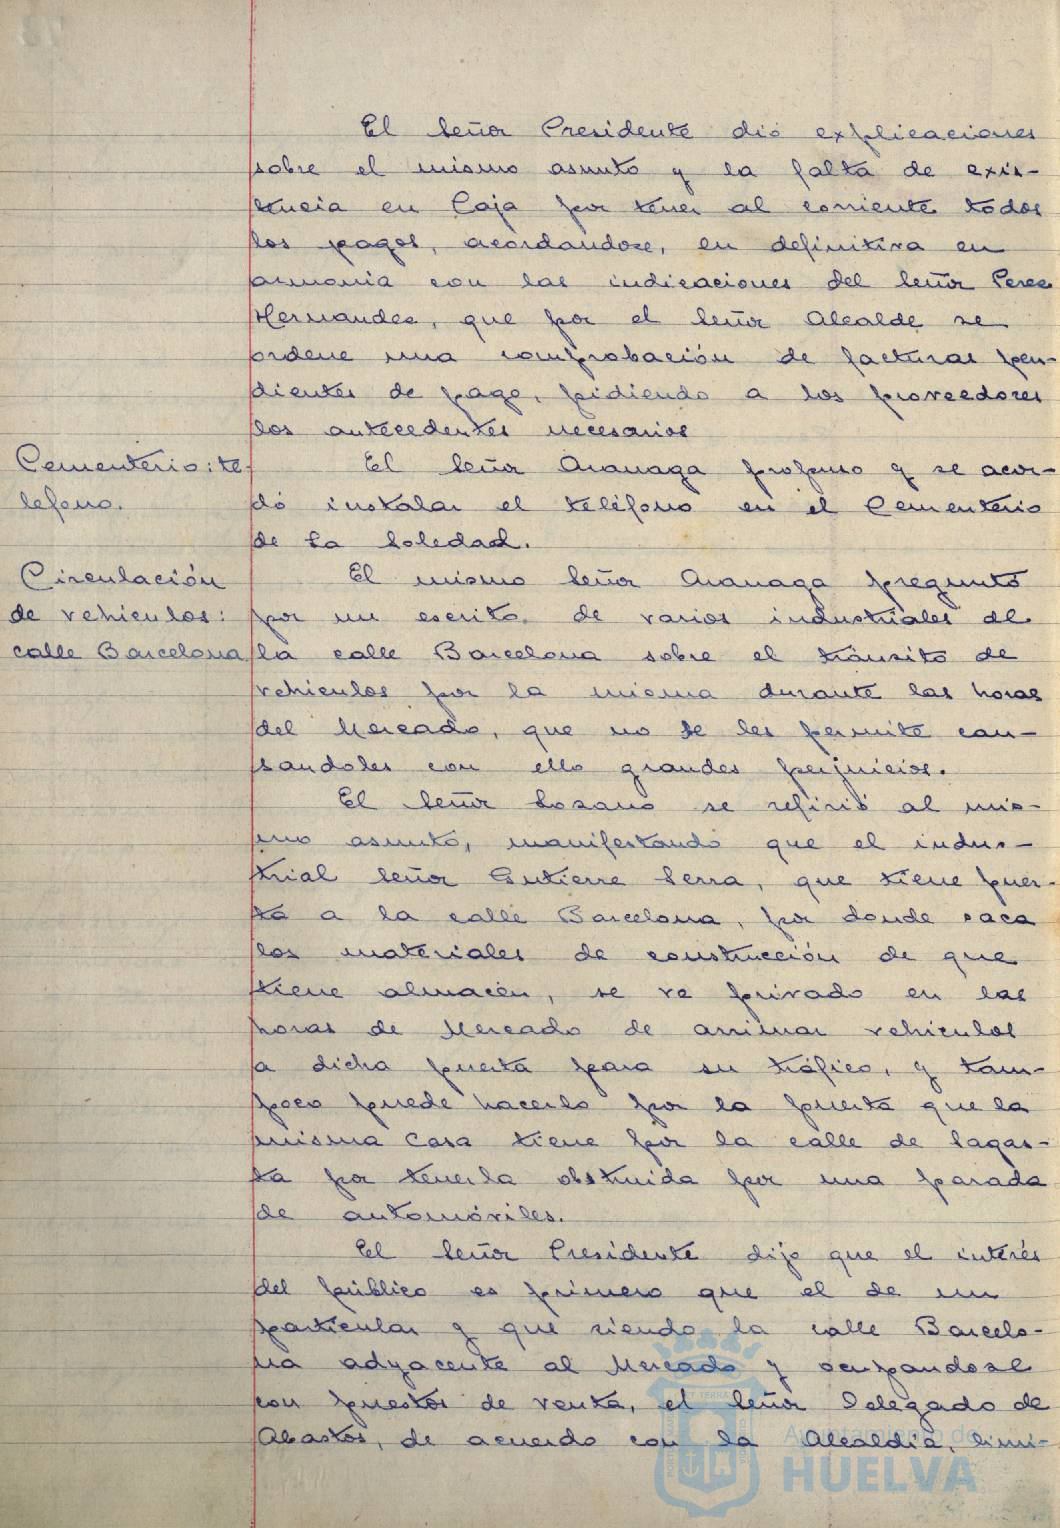 El Señor Presidente dió explicaciones
sobre el mismo asunto y la falta de exis-
tencia en Caja por tener al corriente todos
los pagos, acordandose, en definitiva en
armonia con las indicaciones del Señor Perez
Hernandez, que por el Señor Alcalde se
ordene una comprobación de facturas pen-
dientes de pago, pidiendo a los proveedores
los antecedentes necesarios
Cementerio: te-
lefono.
El Señor Aranaga propuso y se acor-
dó instalar el teléfono en el Cementerio
de la Soledad.
Circulación
de vehiculos:
calle Barcelona
El mismo Señor Aranaga preguntó
por un escrito de varios industriales de
la calle Barcelona sobre el tránsito de
vehiculos por la misma durante las horas
del Mercado, que no se les permite cau-
sandoles con ello grandes perjuicios.
El Señor Lozano se refirió al mis-
mo asunto, manifestando que el indus-
trial Señor Gutierre Serra, que tiene puer-
ta a la calle Barcelona, por donde saca
los materiales de construcción de que
tiene almacén, se ve privado en las
horas de Mercado de arrimar vehiculos
a dicha puerta para su tráfico, y tam-
poco puede hacerlo por la puerta que la
misma casa tiene por la calle de Sagas-
ta por tenerla obstruida por una parada
de automóviles.
El Señor Presidente dijo que el interés
del público es primero que el de un
particular y que siendo la calle Barcelo-
na adyacente al Mercado y ocupandose
con puestos de venta, el Señor Delegado de
Abastos, de acuerdo con la Alcaldía, limi-
Ayuntamiento de
HUELVA